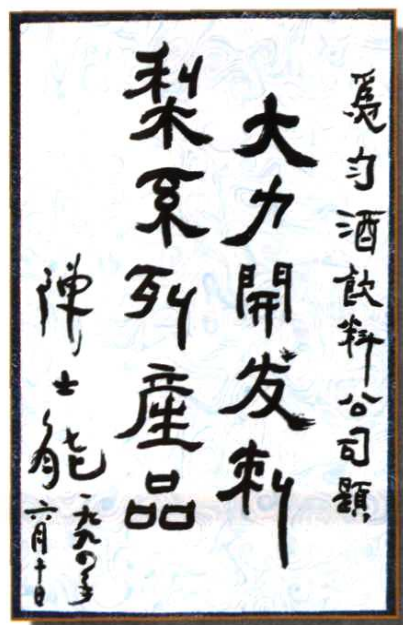 爲匀酒飲料公司題
大力開发刺
梨系列産品
陳士能
一九九〇年
六月十日